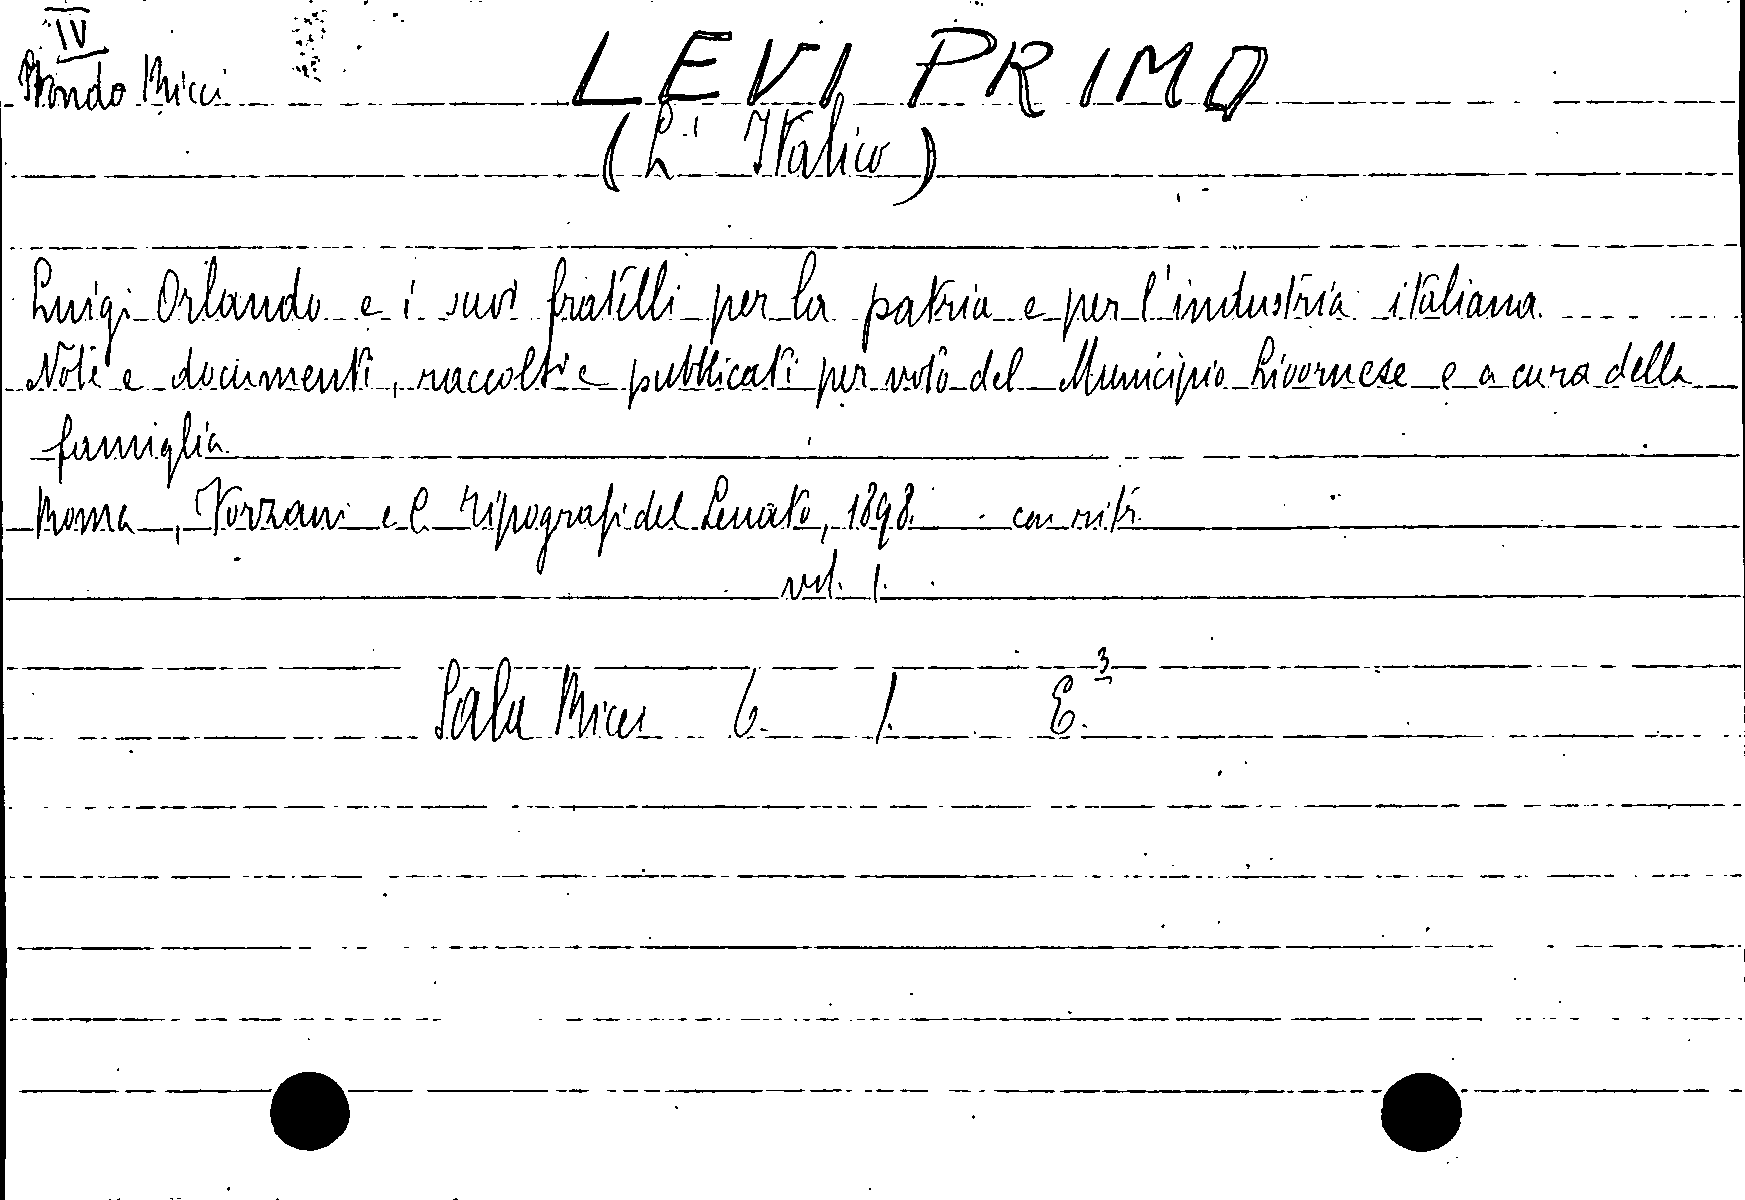 IV
Fondo Ricci
LEVI PRIMO
(L' Italico)
Luigi Orlando e i suoi fratelli per la patria e per l'industria italiana.
Note e documenti, raccolti e pubblicati per voto del Municipio Livornese e a cura della
famiglia
Roma, Forzani e C. tipografi del Senato, 1898. con ritr.
vol. 1.
Sala Ricci 6. 1. E.3